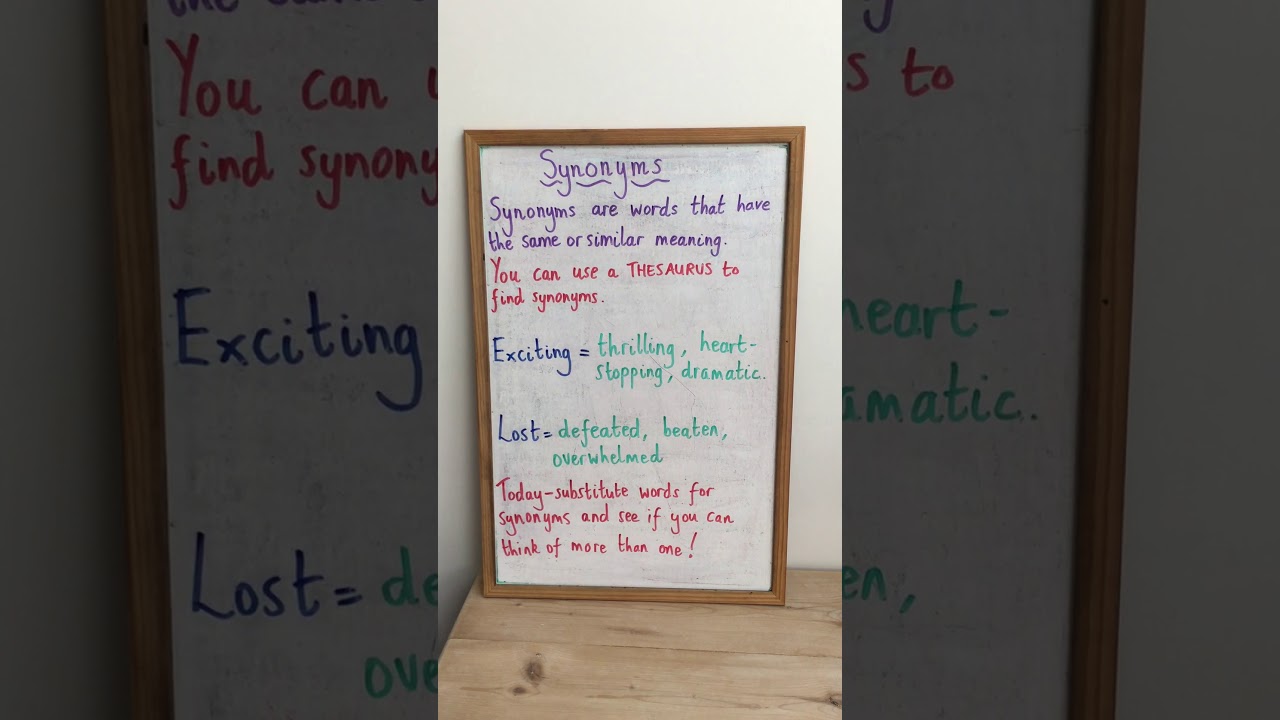 Synonyms
Synonyms are words that have
the same or similar meaning.
You can use a THESAURUS to
find synonyms.
Exciting = thrilling, heart-
stopping, dramatic.
Lost = defeated, beaten,
overwhelmed
Today-substitute words for
synonyms and see if you can
think of more than one!